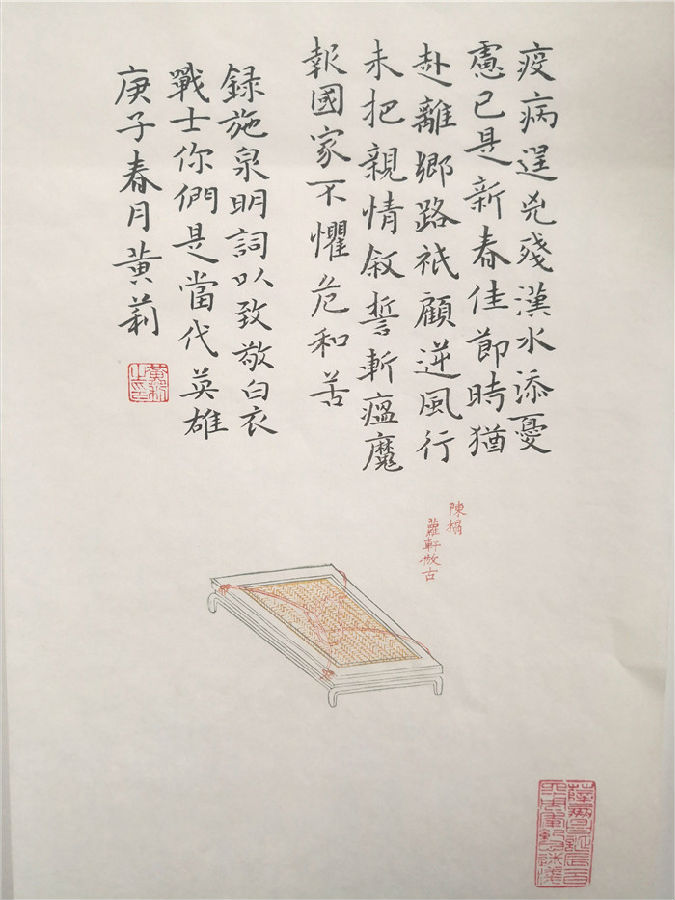 疫病逞兇殘漢水添憂
慮已是新春佳節時猶
赴離鄉路祇顧逆風行
未把親情敘誓斬瘟魔
報國家不懼危和苦
録施泉明詞以致敬白衣
戰士你們是當代英雄
庚子春月黃莉
陳榻
蘿軒倣古